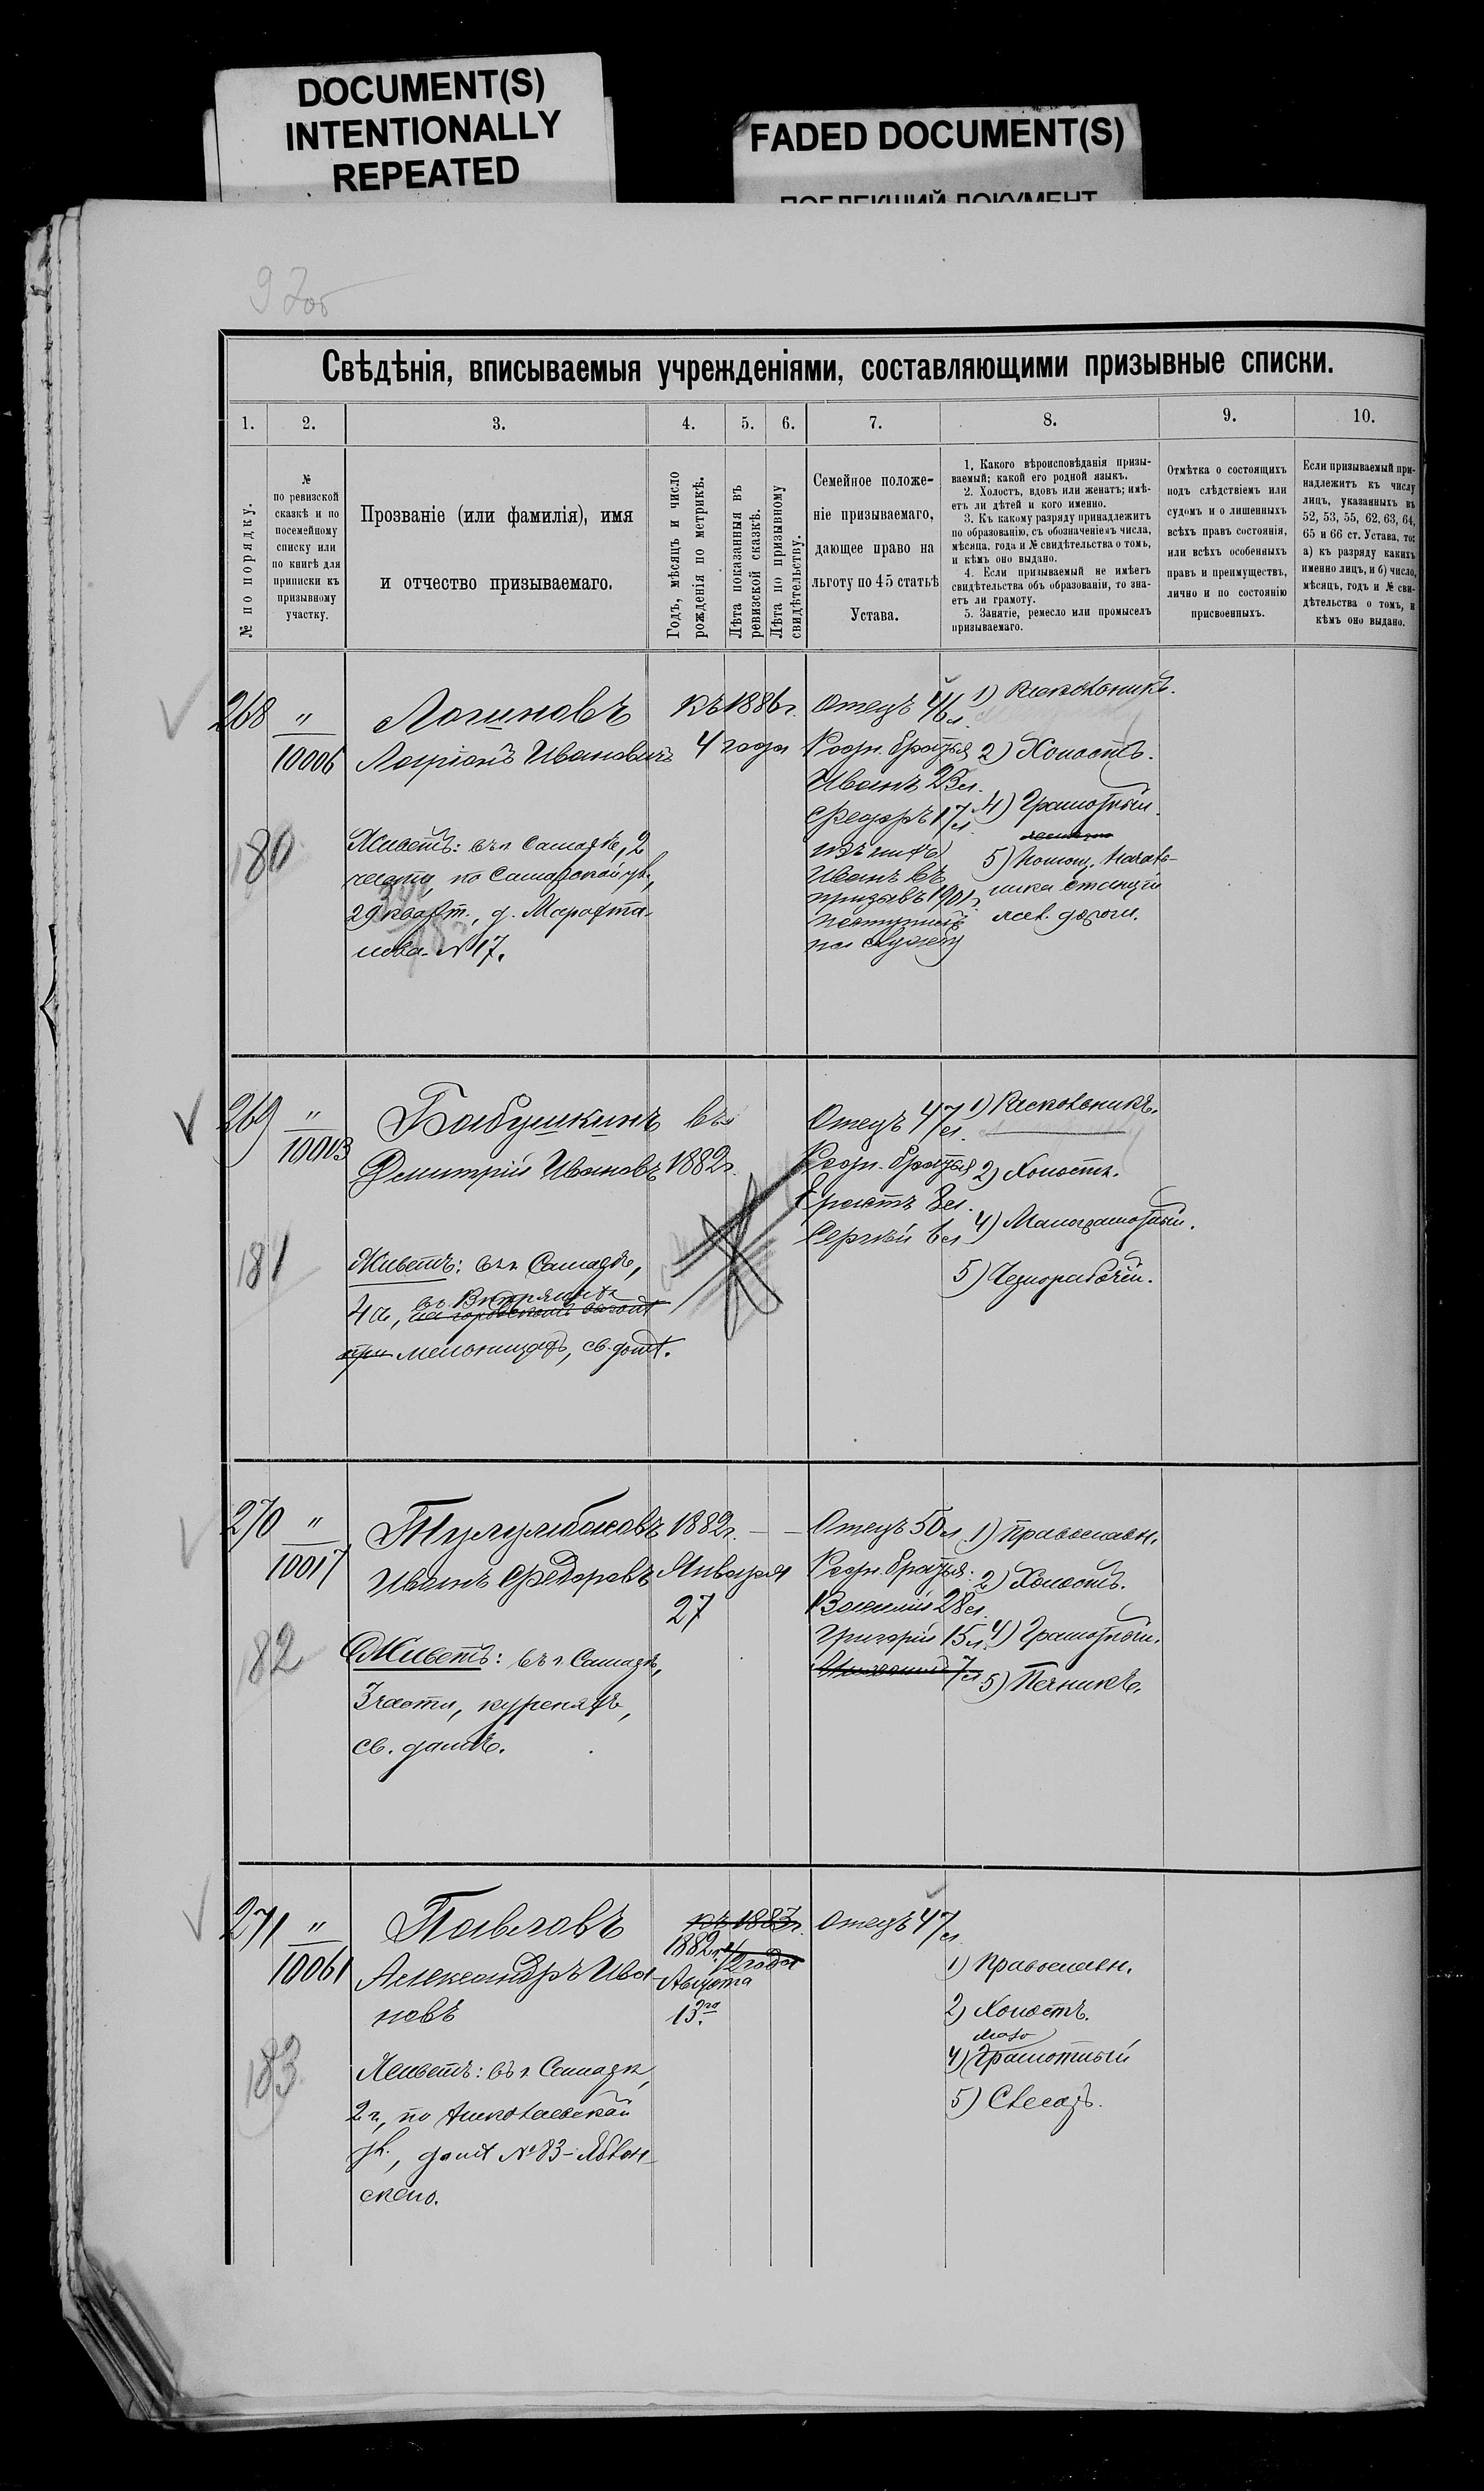 DOCUMENT(S)
INTENTIONALLY
REPEATED
FADED DOCUMENT(S)
ПОБЛЕКШИЙ ДОКУМЕНТ
97об
Свѣдѣнія, вписываемыя учрежденіями, составляющими призывные списки.
1. 2. 3. 4. 5. 6. 7. 8. 9. 10.
№ по порядку.
№
по ревизской
сказкѣ и по
посемейному
списку или
по книгѣ для
приписки къ
призывному
участку.
Прозваніе (или фамилія), имя
и отчество призываемаго.
Годъ, мѣсяцъ и число
рожденія по метрикѣ.
Лѣта показанныя въ
ревизской сказкѣ.
Лѣта по призывному
свидѣтельству.
Семейное положе-
ніе призываемаго,
дающее право на
льготу по 45 статьѣ
Устава.
1. Какого вѣроисповѣданія призы-
ваемый; какой его родной языкъ.
2. Холостъ, вдовъ или женатъ; имѣ-
етъ ли дѣтей и кого именно.
3. Къ какому разряду принадлежитъ
по образованію, съ обозначеніемъ числа,
мѣсяца, года и № свидѣтельства о томъ,
и кѣмъ оно выдано.
4. Если призываемый не имѣетъ
свидѣтельства объ образованіи, то зна-
етъ ли грамоту.
5. Занятіе, ремесло или промыселъ
призываемаго.
Отмѣтка о состоящихъ
подъ слѣдствіемъ или
судомъ и о лишенныхъ
всѣхъ правъ состоянія,
или всѣхъ особенныхъ
правъ и преимуществъ,
лично и по состоянію
присвоенныхъ.
Если призываемый при-
надлежитъ къ числу
лицъ, указанныхъ въ
52, 53, 55, 62, 63, 64,
65 и 66 ст. Устава, то:
а) къ разряду какихъ
именно лицъ, и б) число,
мѣсяцъ, годъ и № сви-
дѣтельства о томъ, и
кѣмъ оно выдано.
268 "
10006
180
Логиновъ
Ларіонъ Ивановичъ
Живетъ: въ г. Самарѣ, 2
части, по Самарской ул.,
29 кварт., д.
№ 17.
къ 1886 г.
4 года
Отецъ 46 л.
Родн. братья
Иванъ 23 л.
Федоръ 17 л.
изъ нихъ
Иванъ въ
призывъ 1901 г.
поступилъ
на службу
1) Раскольникъ.
2) Холостъ.
4) Грамотный.
5) Помощ. Началь-
ника станціи
жел. дороги.
269 "
10013
181
Бабушкинъ
Дмитрій Ивановъ
Живетъ: въ г. Самарѣ,
4 ч.,
при мельницахъ, св. домъ.
въ
1882 г.
Отецъ 47 л.
Родн. братья
Ерастъ 8 л.
Сергѣй 6 л.
1) Раскольникъ.
2) Холостъ.
4) Малограмотный.
5) Чернорабочій.
270 "
10017
182
Тулумбасовъ
Иванъ Федоровъ
Живетъ: въ г. Самарѣ,
3 части, куреняхъ,
св. домъ.
1882 г.
Января
27
Отецъ 50 л.
Родн. братья:
Василій 28 л.
Григорій 15 л.
7 л.
1) Православн.
2) Холостъ.
4) Грамотный.
5) Печникъ.
271 "
10061
183
Павловъ
Александръ Ива-
новъ
Живетъ: въ г. Самарѣ,
2 ч., по Николаевской
ул., домъ № 83-
скаго.
къ 1883 г.
1882 г. 1/2 года
Августа
13го.
Отецъ 47 л.
1) Православн.
2) Холостъ.
мало
4) Грамотный
5) Слесарь.